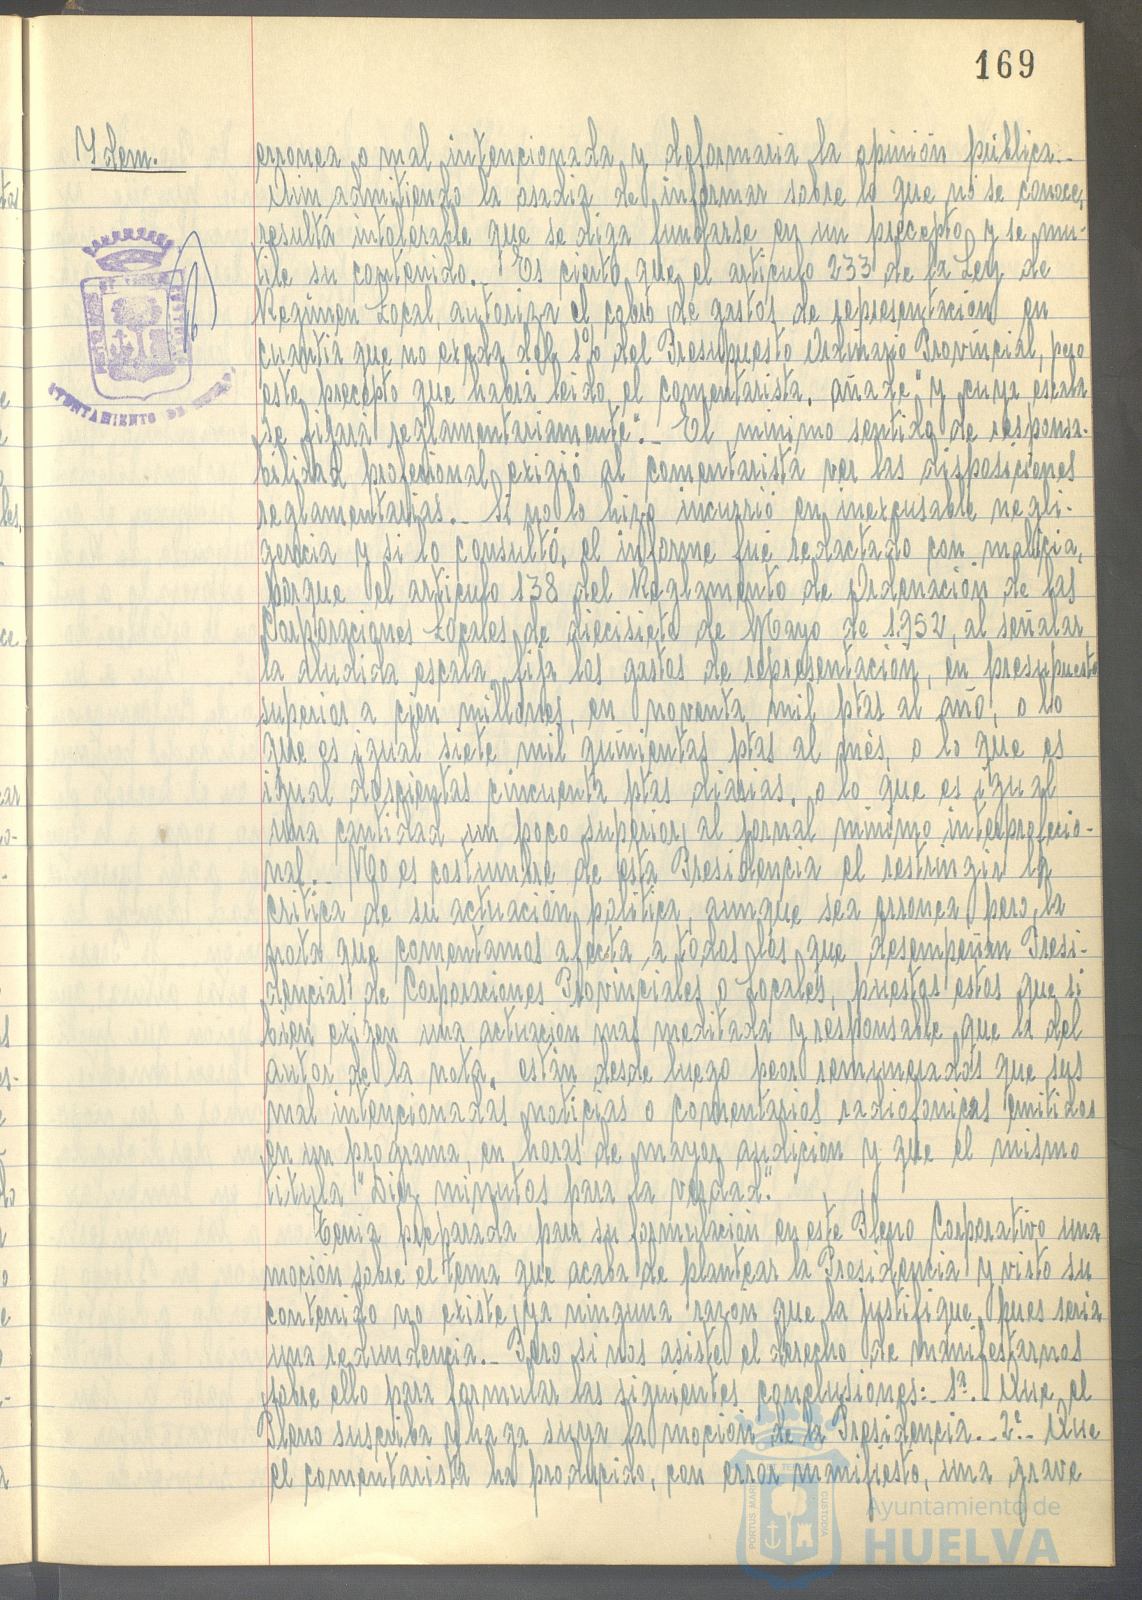 169
Ydem.
erronea o mal intencionada y deformaria la opinión pública.-
Aun admitiendo la osadia de informar sobre lo que no se conoce,
resulta intolerable que se diga fundarse en un precepto y se mu-
tile su contenido.- Es cierto que el artículo 233 de la Ley de
Regimen Local, autoriza el cobro de gastos de representación en
cuantia que no exceda del 1% del Presupuesto Ordinario Provincial, pero
este precepto que habia leido, el comentarista, añade "y cuya escala
se fijará reglamentariamente".- El minimo sentido de responsa-
bilidad profesional exigió al comentarista ver las disposiciones
reglamentarias.- Si no lo hizo incurrió en inexcusable negli-
gencia y si lo consultó, el informe fué redactado con malicia,
porque el articulo 138 del Reglamento de Ordenación de las
Corporaciones Locales de diecisiete de Mayo de 1.952, al señalar
la aludida escala, fija los gastos de representación, en presupuesto
superior a cien millones, en noventa mil ptas al año, o lo
que es igual siete mil quinientas ptas al més, o lo que es
igual doscientas cincuenta ptas diarias, o lo que es igual
una cantidad un poco superior al jornal minimo interprofesio-
nal.- No es costumbre de esta Presidencia el restringir la
critica de su actuación politica, aunque sea erronea pero, la
nota que comentamos afecta a todos los que desempeñan Presi-
dencias de Corporaciones Provinciales o Locales, puestos estos que si
bien exigen una actuación mas meditada y responsable que la del
autor de la nota, están desde luego peor remunerados que sus
mal intencionadas noticias o comentarios radiofonicas emitidos
en un programa, en horas de mayor audición y que el mismo
titula "Diez minutos para la verdad".
Tenia preparada para su formulación en este Pleno Corporativo una
moción sobre el tema que acaba de plantear la Presidencia y visto su
contenido no existe ya ninguna razón que la justifique, pues seria
una redundencia.- Pero si nos asiste el derecho de manifestarnos
sobre ello para formular las siguientes conclusiones:- 1ª.- Que el
Pleno suscriba y haga suya la moción de la Presidencia.- 2ª.- Que
el comentarista ha producido, con error manifiesto, una grave
AYUNTAMIENTO DE
PORTUS MARIS
CUSTODIA
Ayuntamiento de
HUELVA